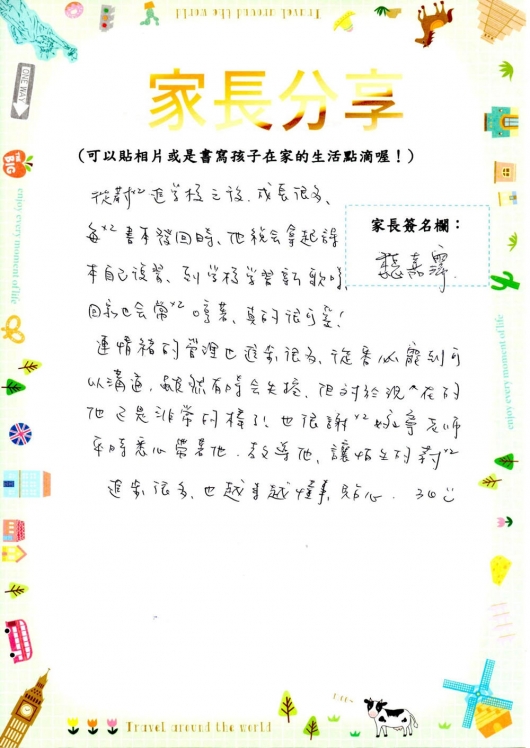 Travel around the world
家長分享
ONE WAY
THE BIG
(可以貼相片或是書寫孩子在家的生活點滴喔！)
enjoy every moment of life
進學校之後,成長很多、
家長簽名欄：
每次書本發回時、他就會拿起課
本自己複習、到學校學習新歌時、
回家也會常常哼著、真的很可愛！
連情緒的管理也進步很多、從
以溝通,雖然有時會失控,但對於現在的
他已是非常的棒了！也很謝謝 老師
平時悉心帶著他.教導他、讓
進步很多、也越來越懂事,貼心.
enjoy every moment of life
Travel around the world